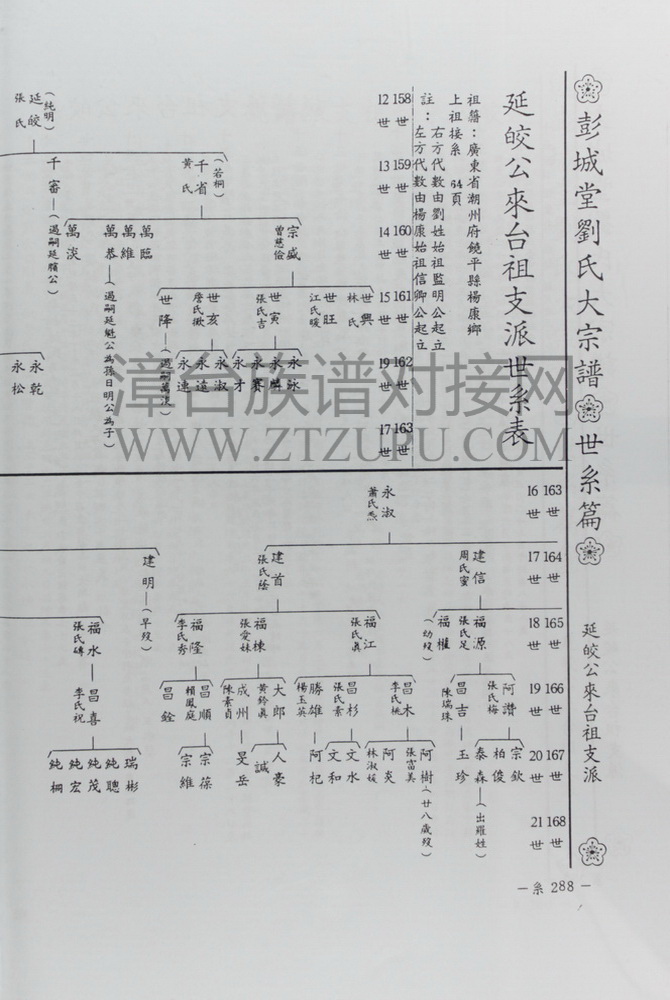 彭城堂劉氏大宗譜 世系篇
延皎公來台祖支派
—系 288—
延皎公來台祖支派世系表
祖籍：廣東省潮州府饒平縣楊康鄉
上祖接系 64頁
註：右方代數由劉姓始祖監明公起立
左方代數由楊康始祖信卿公起立
158世 159世 160世 161世 162世 163世
12世 13世 14世 15世 19世 17世
(純明)
延皎
張氏
(若桐)
千省
黃氏
千審—(過嗣延臏公)
宗盛
曾慈儉
萬臨
萬維
萬恭—(過嗣延魁公為孫日明公為子)
萬淡
世興
林氏
世旺
江氏暖
世寅
張氏吉
世亥
詹氏掀
世降—(過嗣萬淡)
永泳
永麟
永賽
永才
永淑
永遠
永速
永乾
永松
163世 164世 165世 166世 167世 168世
16世 17世 18世 19世 20世 21世
永淑
蕭氏
建信
周氏蜜
建首
張氏
建明—(早歿)
福源
張氏足
福權
(幼歿)
福江
張氏真
福棟
張愛妹
福隆
李氏秀
福水
張氏
阿讚
張氏梅
昌吉
陳瑞珠
昌木
李氏桃
昌杉
張氏素
勝雄
楊玉英
大郎
黃鈴真
成州
陳素貞
昌順
賴鳳庭
昌銓
昌喜
李氏祝
宗欽
柏俊
泰森—(出羅姓)
玉珍
阿樹(廿八歲歿)
張富美
阿炎
林淑媛
文水
文和
阿杞
人豪
誠
旻岳
宗葆
宗維
瑞彬
純聰
純茂
純宏
純桐
漳台族谱对接网
WWW.ZTZUPU.COM